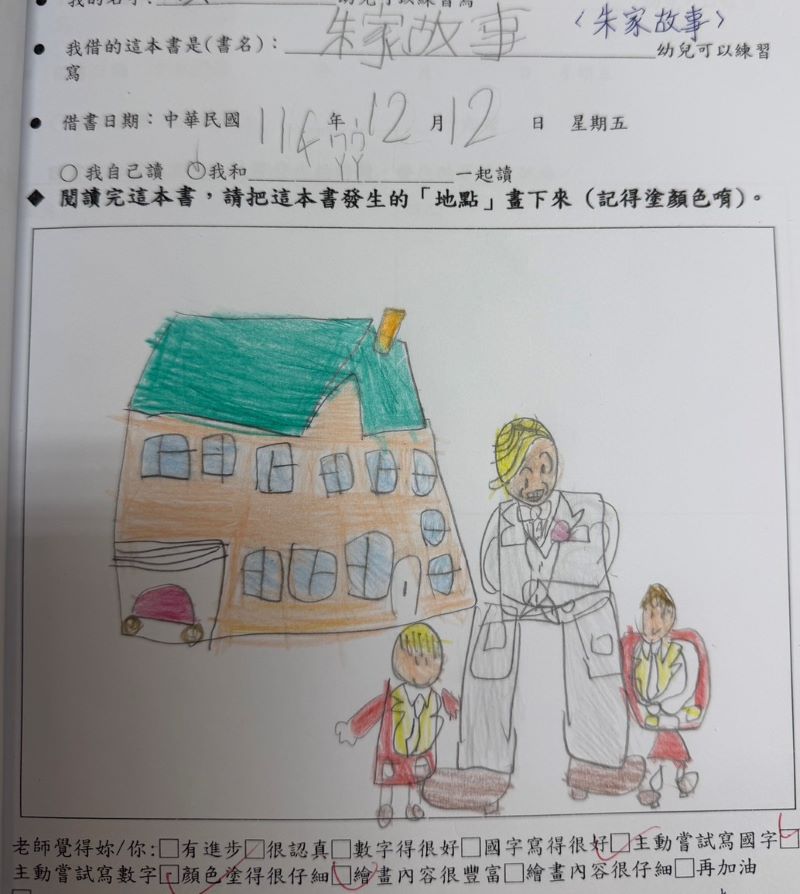 幼兒可以練習寫
〈朱家故事〉
● 我借的這本書是(書名)：朱家故事 幼兒可以練習
寫
● 借書日期：中華民國 114 年 12 月 12 日 星期五
○ 我自己讀 ○ 我和 一起讀
◆ 閱讀完這本書，請把這本書發生的「地點」畫下來（記得塗顏色唷）。
老師覺得妳/你：□有進步□很認真□數字得很好□國字寫得很好□主動嘗試寫國字□
主動嘗試寫數字□顏色塗得很仔細□繪畫內容很豐富□繪畫內容很仔細□再加油